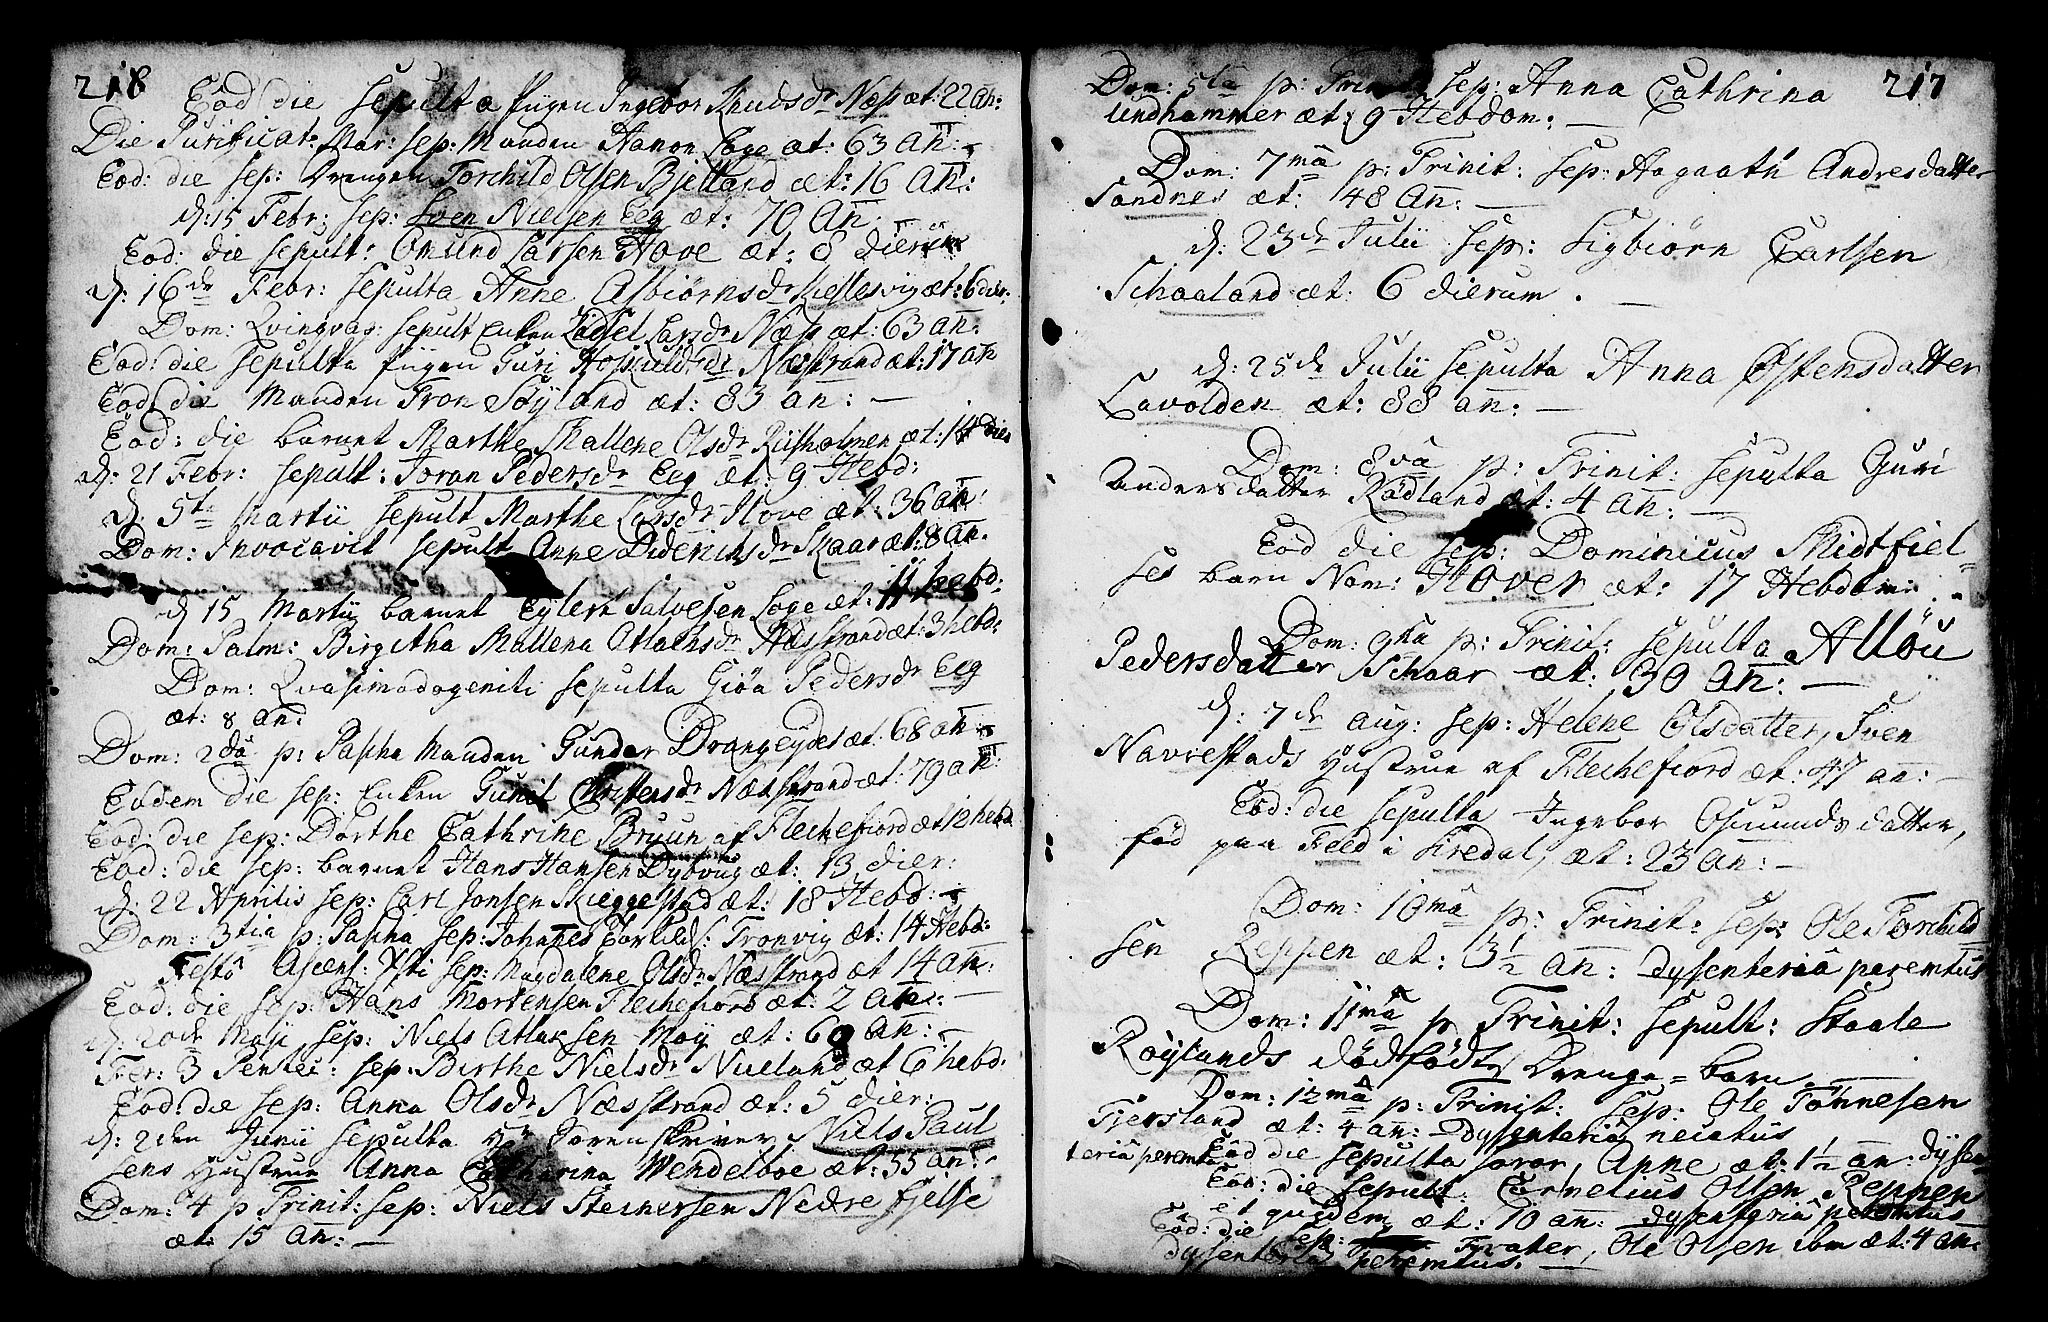 218
Eod die sepulta pigen Ingebor Knudsdr Næss æt: 22 an:
Die Purificat: Mar: sep: Manden Aanon Loge æt: 63 an:
Eod: die sep: Drengen Torchild Olsen Bielland æt: 16 an:
d: 15 Febr: sep: Sven Nielsen Eeg æt: 70 an:
Eod: die sepult: Omund Larsen Hove æt: 8 dierum
d: 16de Febr: sepulta Anne Asbiørnsdr æt: 6 dier:
Dom: Qvinqvag: sepult Enken Lars dr Næss æt: 63 an:
Eod: die sepulta pigen Guri Næsstrand æt: 17 an
Eod die Manden Tron Søyland æt: 83 an: —
Eod: die barnet Marthe Mallene Olsdr Riisholmen æt: 14 dier
d: 21 Febr: sepult: Joran Pedersdr Eeg æt: 9 Hebd:
d: 5te Martii sepult Marthe Larsdr Hove æt: 36 an:
Dom: Invocavit sepult Anne Diderichsdr Skaar æt: 8 an.
d 15 Martii barnet Eylert Salvesen Loge æt: 11 hebd:
Dom: Palm: Birgitha Mallena Atlachsdr Næsstrand æt: 3 hebd:
Dom: Qvasimodogeniti sepulta Giøa Pedersdr Eeg
æt: 8 an:
Dom: 2da p: Pascha Manden Gunder Drangeydet æt: 68 an:
Eodem die sep: Enken Gunil Christensdr Næsstrand æt: 79 an:
Eod: die sep: Dorthe Cathrine Bruun af Flechefiord æt 12 hebd
Eod: die sep: barnet Hans Hansen Dybvig æt: 13 dier:
d: 22 Aprilis sep: Carl Jonsen Skieggestad æt: 18 Hebd:
Dom: 3tia p: Pascha sep: Johannes Torkilds: Tronvig æt: 14 Hebd:
Festo Ascens: Xsti sep: Magdalene Olsdr Næsstrand æt 14 an:
Eod: die sep: Hans Mortensen Flechefiord æt: 2 an: —
d: 20de Maji sep: Niels Atlaksen Moy æt: 60 an: —
Fer: 3 Pentec: sep: Birthe Nielsdr Nuland æt 6 hebd.
Eod: die sep: Anna Olsdr Næsstrand æt: 5 dier:
d: 2den Junii sepulta Hr Sorenskriver Niels Paul
sens Hustrue Anna Catharina Wendelboe æt: 55 an:
Dom: 4 p Trinit: sep: Niels Steinersen Nedre Fjelse
æt: 15 an: —
217
Dom: 5ta p: Trinit: sep: Anna Cathrina
Lindhammer æt: 9 Hebdom: —
Dom: 7ma p: Trinit: sep: Aagaath Andresdatter
Sandnes æt: 48 an: —
d: 23de Julii sep: Sigbiørn Carlsen
Schaaland æt: 6 dierum. —
d: 25de Julii sepulta Anna Østensdatter
Lavolden æt: 88 an: —
Dom: 8va p: Trinit: sepulta Guri
Andersdatter Rødland æt: 4 an: —
Eod die sep: Dominicus Midtfiel-
ses barn Nom: Hover æt: 17 Hebdom:
Dom: 9na p: Trinit: sepulta Alløu
Pedersdatter Schaar æt: 30 an: —
d: 7de Aug: sep: Helene Olsdatter, Sven
Navrestads Hustrue af Flechefiord æt: 47 an: —
Eod: die sepulta Ingebor Osmunds datter,
fød paa Feed i Siredal, æt: 23 an: —
Dom: 10ma p: Trinit: sep: Ole Torchild-
sen Reppen æt: 3½ an: dysenteriâ peremtus
Dom: 11ma p Trinit: sepult: Staale
Røylands dødfødt Drenge-barn —
Dom: 12ma p: Trinit: sep: Ole Tønnesen
Fjersland æt: 4 an: dysenteriâ necatus
Eod die sepulta soror, Anne æt: 1½ an: dysen-
teriâ peremta
Eod: die sepult. Cornelius Olsen Reppen
et quidem æt: 10 an: dysenteriâ peremtus
Eod: die sep: Frater, Ole Olsen ibm æt: 4 an:
dysenteriâ peremtus. —